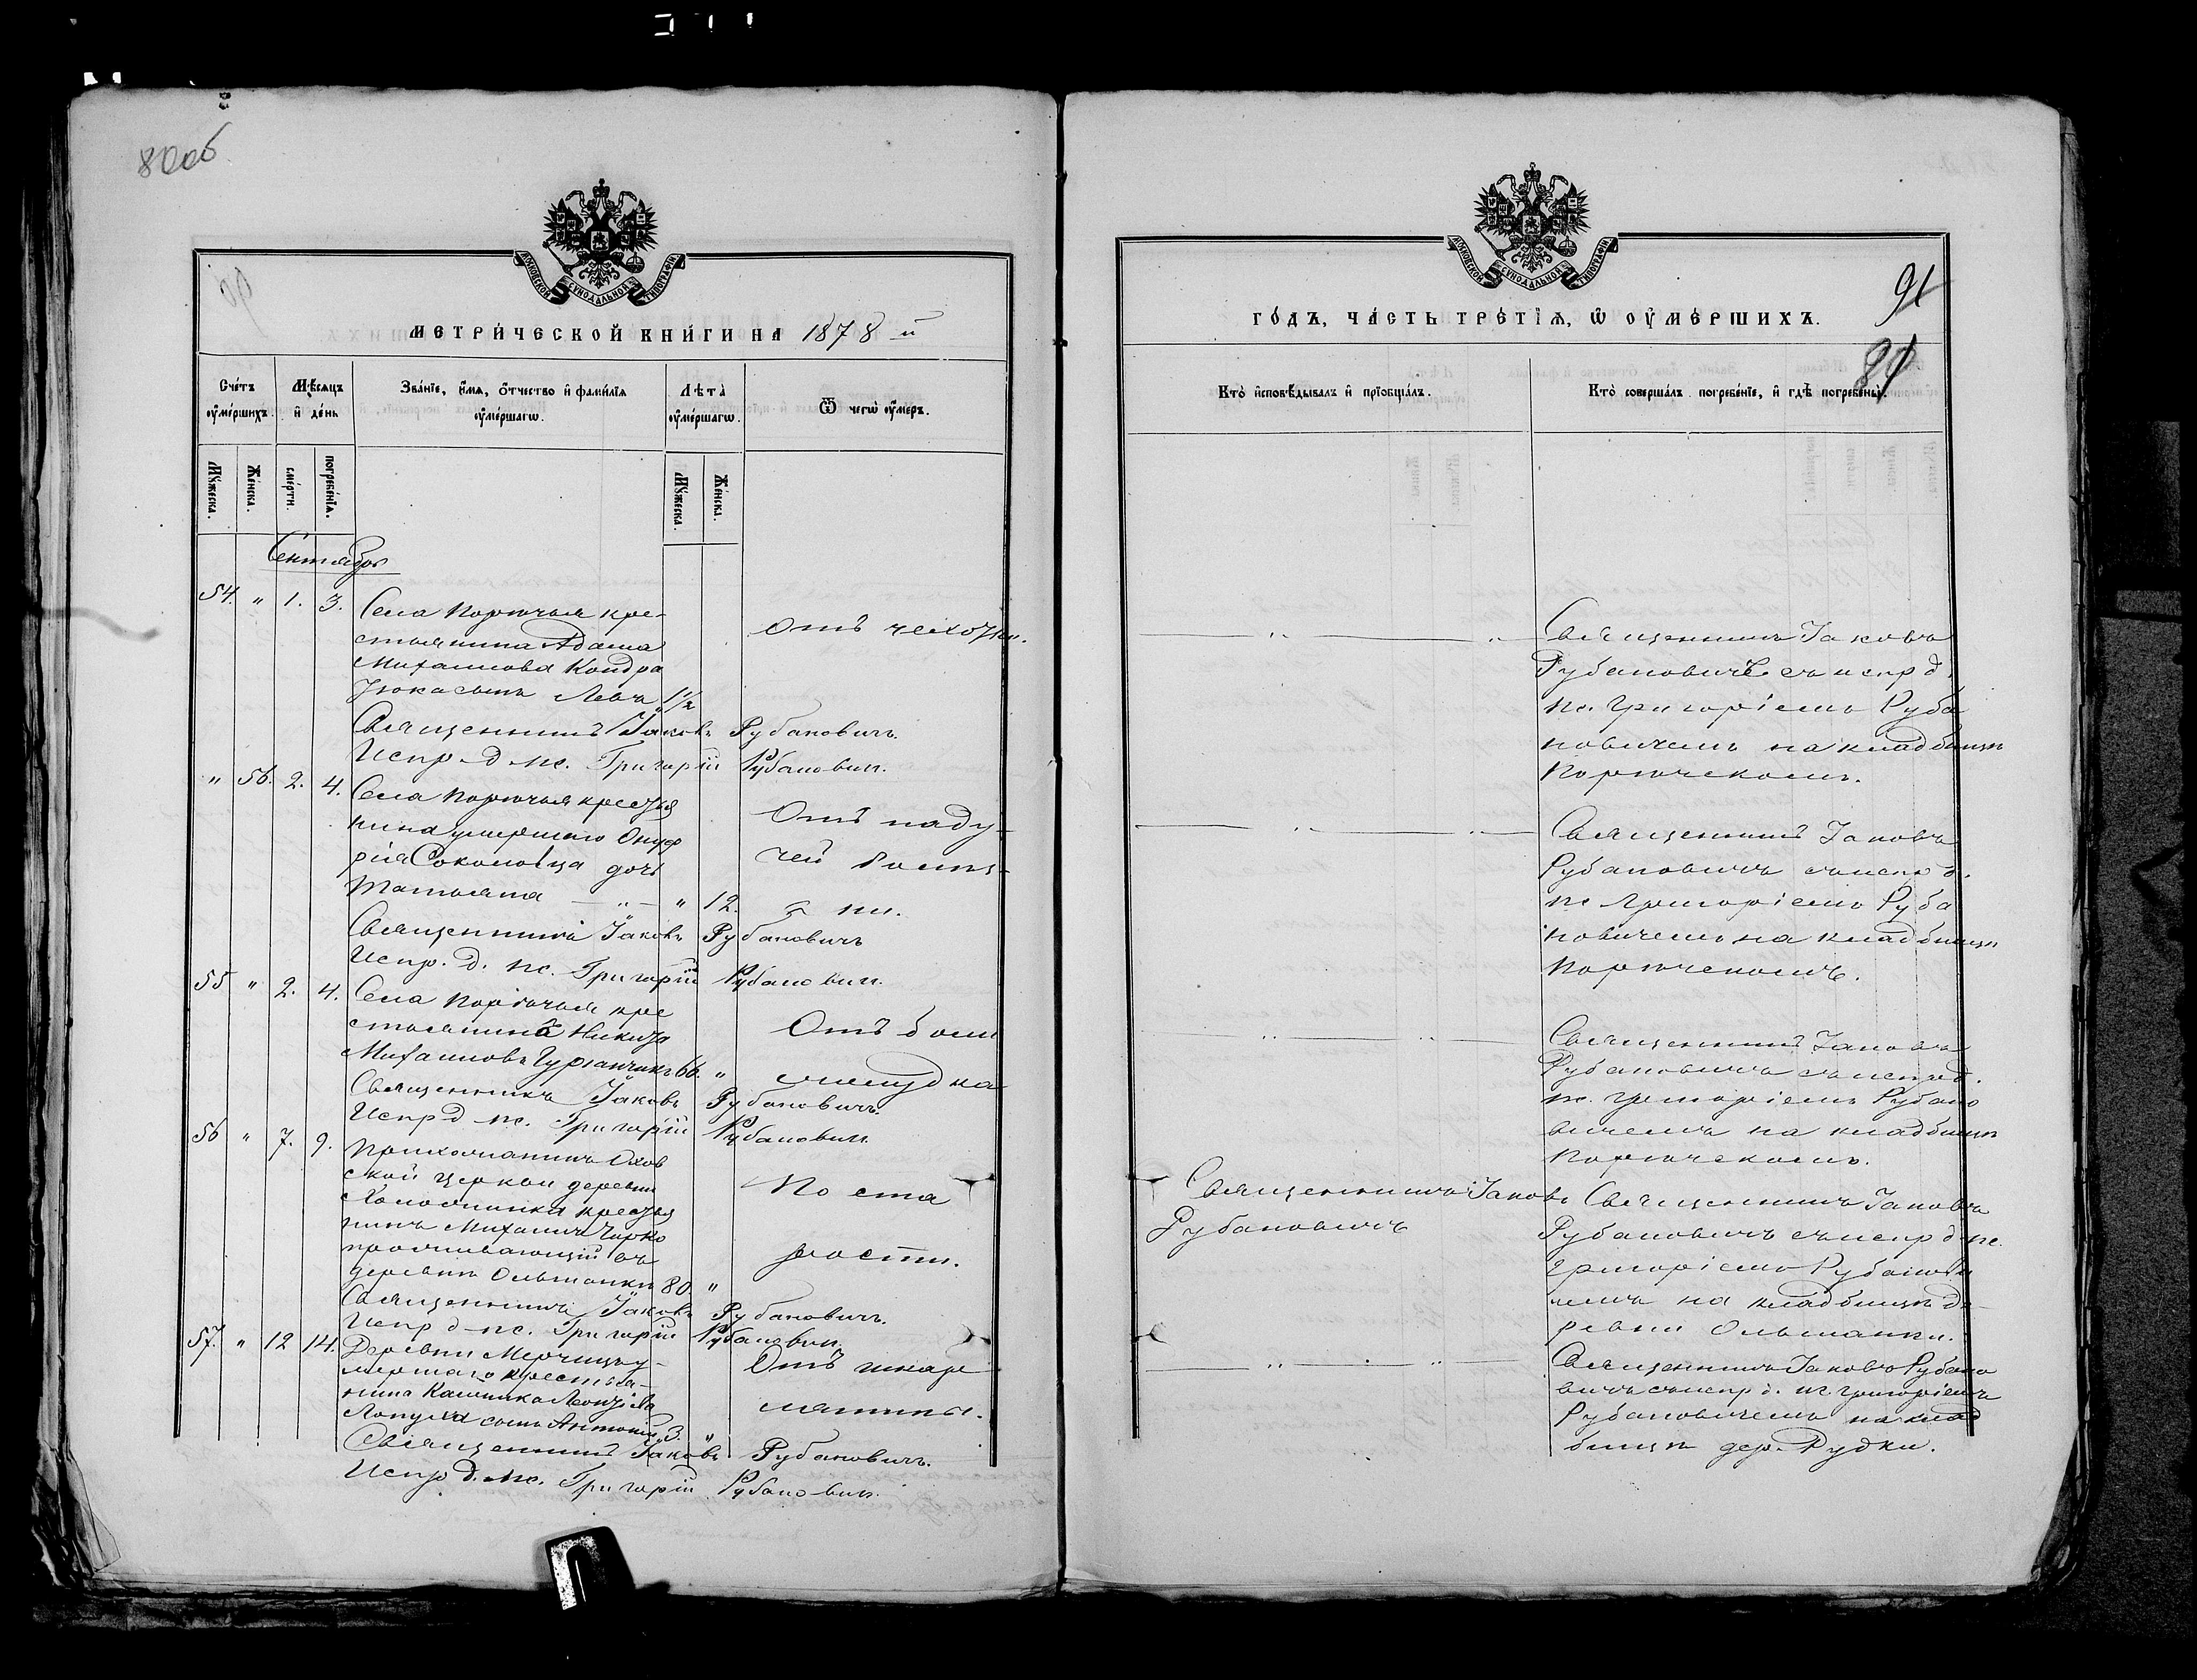 80об
МОСКОВСКОЙ СѴНОДАЛЬНОЙ ТИПОГРАФІИ
МЕТРИ́ЧЕСКОЙ КНИ́ГИ НА 1878 й
Сче́тъ ᲂу҆ме́ршихъ.
Мѣ́сяцъ и҆ де́нь
Зва́нїе, и҆́мѧ, ѻ҆́тчество и҆ фами́лїѧ ᲂу҆ме́ршагѡ.
Лѣ́та ᲂу҆ме́ршагѡ.
Ѿ чегѡ̀ ᲂу҆́меръ.
Мꙋ́жеска.
Же́нска.
сме́рти.
погребе́нїѧ.
Мꙋ́жеска.
Же́нска.
Сентябрь
54. " 1. 3. Села Порѣчья кре-
стьянина Адама
Михаилова Кондра
тюка сынъ Левъ 1½
Отъ чехотки.
Священникъ Іаковъ Рубановичъ.
Испр. д. пс. Григорій Рубановичъ.
" 56. 2. 4. Села Порѣчья крестья
нина умершаго Онуф
рія Соколовца дочь
Татьяна " 12.
Отъ паду-
чей болѣз-
ни.
Священникъ Іаковъ Рубановичъ
Испр. д. пс. Григорій Рубановичъ.
55 " 2. 4. Села Порѣчья кре
стьянинъ Никита
Михаиловъ 66. "
Отъ боли
желудка
Священникъ Іаковъ Рубановичъ.
Испр д пс. Григорій Рубановичъ
56 " 7. 9. Прихожанинъ Охов
ской церкви деревни
крестья
нинъ Михаилъ
проживающій въ
деревни Ольшанки 80. "
По ста
рости.
Священникъ Іаковъ Рубановичъ.
Испр д пс. Григорій Рубановичъ.
57. " 12 14. Деревни Мерчицъ у-
мершаго крестья-
нина
сынъ Антоній 3. "
Отъ шкар
лятины.
Священникъ Іаковъ Рубановичъ.
Испр д. пс. Григорій Рубановичъ.
91
81
МОСКОВСКОЙ СѴНОДАЛЬНОЙ ТИПОГРАФІИ
ГО́ДЪ, ЧА́СТЬ ТРЕ́ТІѦ, Ѡ҆ ОУ҆МЕ́РШИХЪ.
Кто̀ и҆сповѣ́дывалъ и҆ прїѡбща́лъ.
Кто̀ соверша́лъ погребе́нїе, и҆ гдѣ̀ погребены̀.
Священникъ Іаковъ
Рубановичъ съ испр д.
пс. Григоріемъ Руба
новичемъ на кладбищѣ
Порѣчскомъ.
Священникъ Іаковъ
Рубановичъ съ испр д.
пс Григоріемъ Руба
новичемъ на кладбищѣ
Порѣчскомъ.
Священникъ Іаковъ
Рубановичъ съ испр д.
пс. Григоріемъ Рубано
вичемъ на кладбищѣ
Порѣчскомъ.
Священникъ Іаковъ
Рубановичъ
Священникъ Іаковъ
Рубановичъ съ испр д пс.
Григоріемъ Рубанови
чемъ на кладбищѣ де-
ревни Ольшанки.
Священникъ Іаковъ Рубано
вичъ съ испр д. пс. Григоріемъ
Рубановичемъ на клад
бищѣ дер. Рудки.